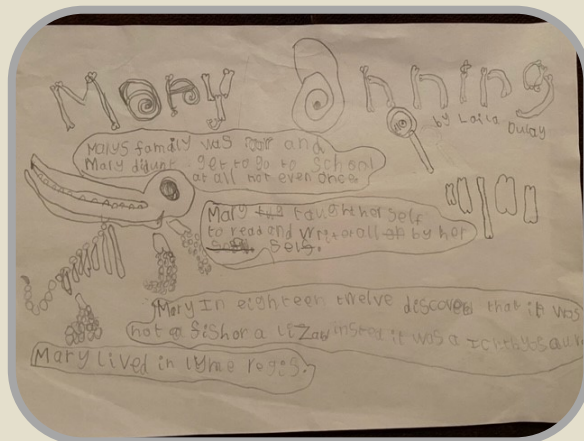 Mary Anning
by Laila Dulay
Marys family was poor and
Mary didunt get to go to School
at all not even once.
Mary taught her Self
to read and write all by her
Self.
Mary In eighteen twelve discoverd that it was
not a fish or a lizard insted it was a
Mary Lived in lyme regis.